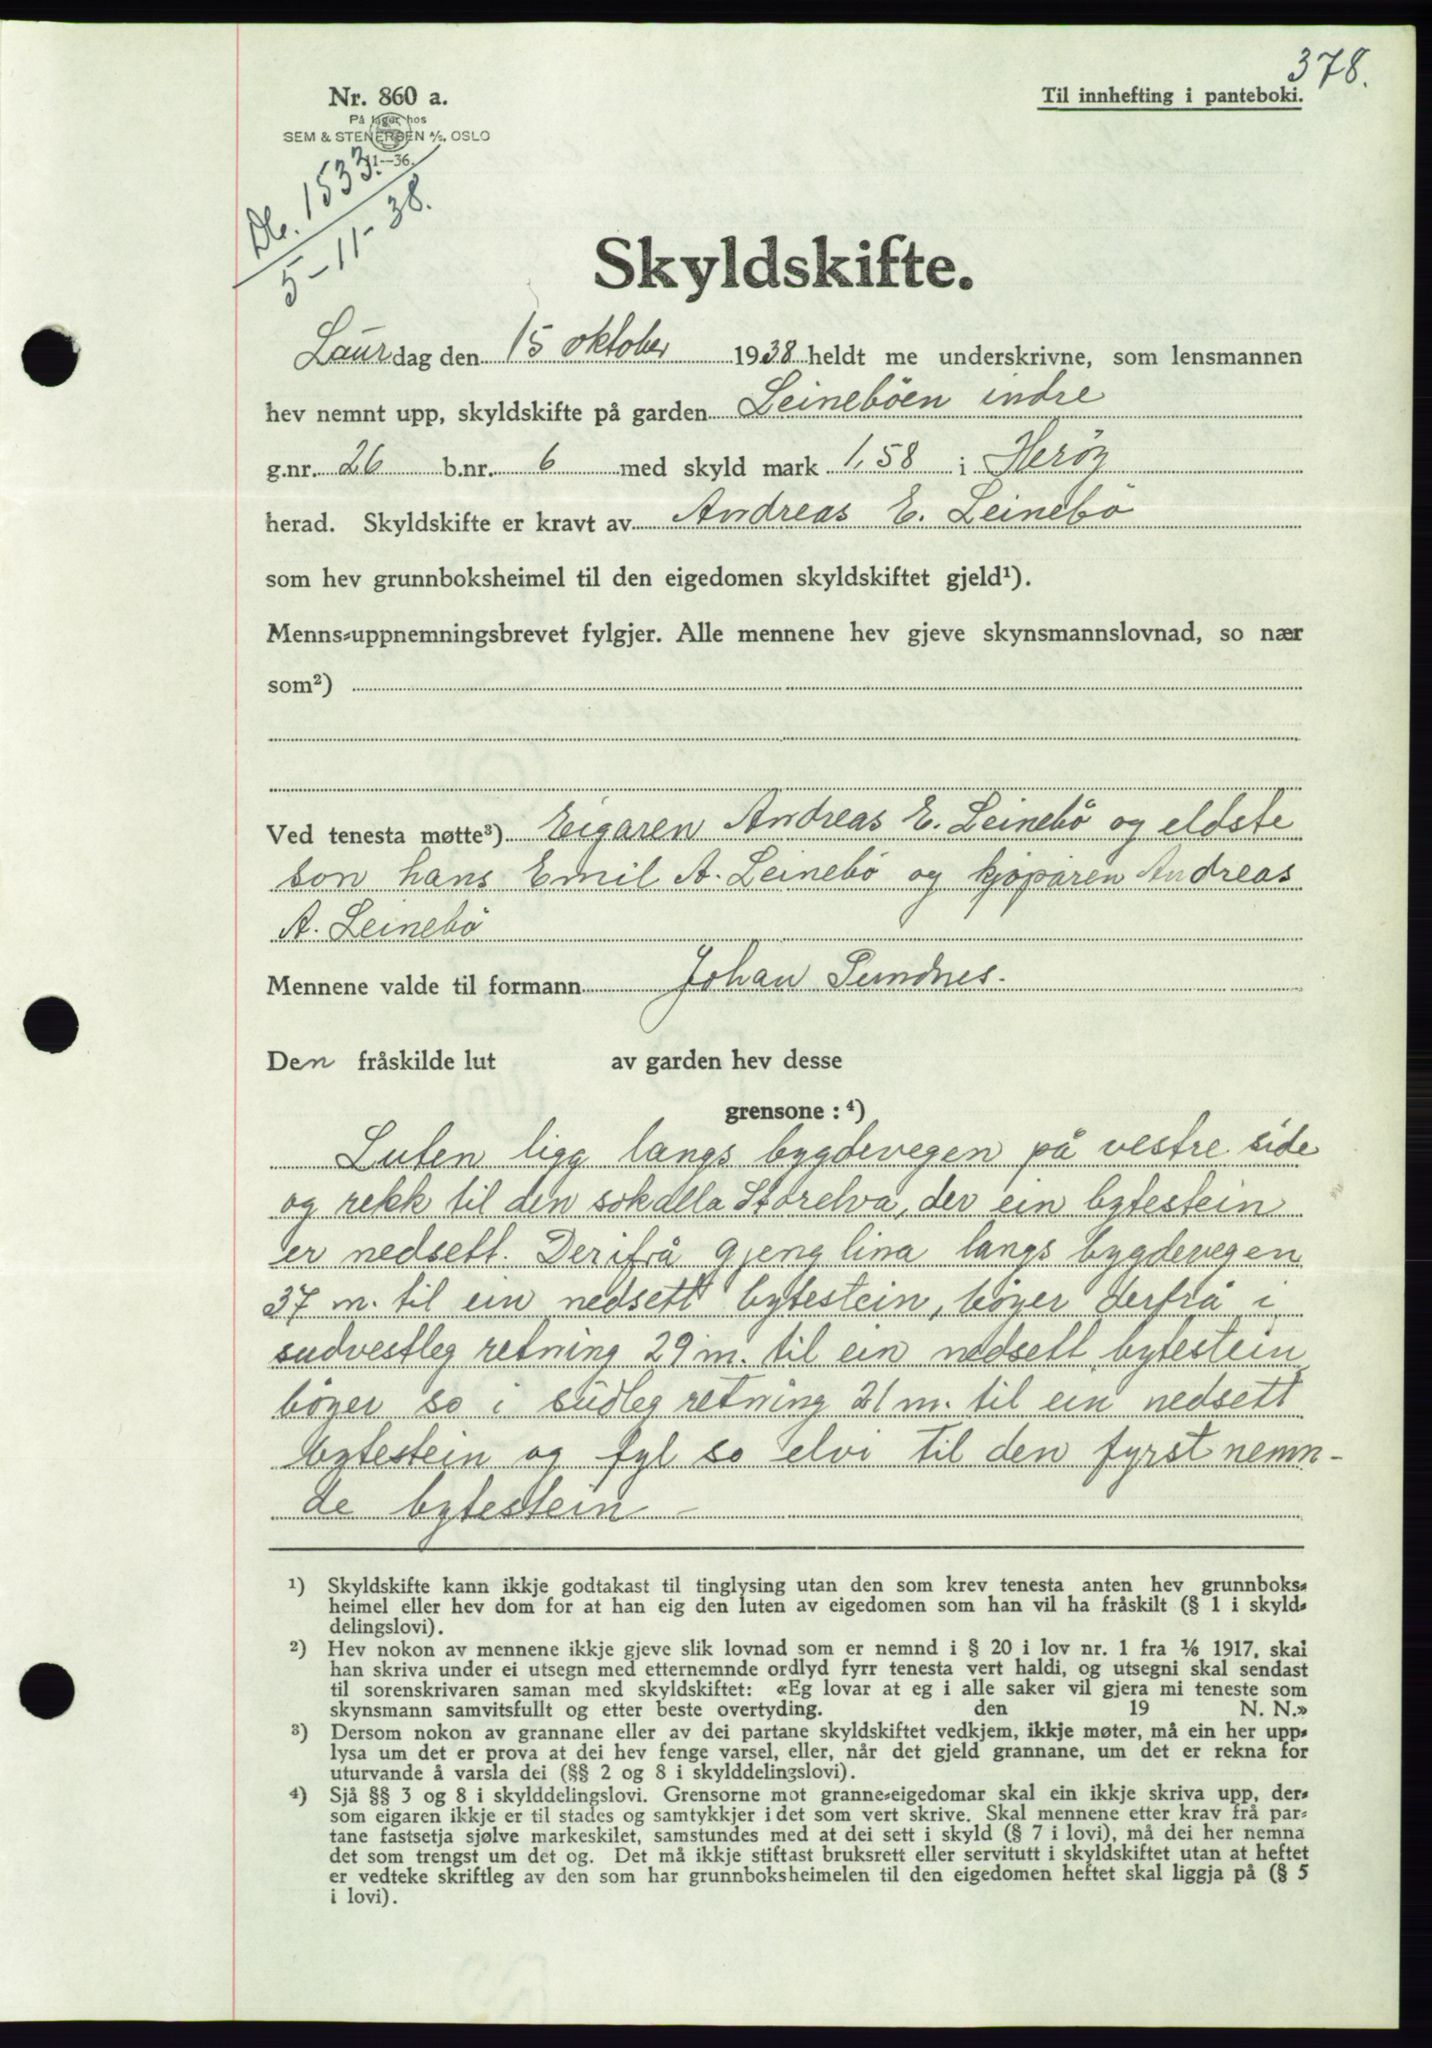 378.
Nr. 860 a.
Til innhefting i panteboki.
På lager hos
SEM & STENERSEN A/S, OSLO
11—36.
Db. 1533.
5-11-38.
Skyldskifte.
Laurdag den 15 oktober 1938 heldt me underskrivne, som lensmannen
hev nemnt upp, skyldskifte på garden Leinebøen indre
g.nr. 26 b.nr. 6 med skyld mark 1,58 i Herøy
herad. Skyldskifte er kravt av Andreas E. Leinebø
som hev grunnboksheimel til den eigedomen skyldskiftet gjeld¹).
Menns-uppnemningsbrevet fylgjer. Alle mennene hev gjeve skynsmannslovnad, so nær
som²)
Ved tenesta møtte³) Eigaren Andreas E. Leinebø og eldste
son hans Emil A. Leinebø og kjøparen Andreas
A. Leinebø
Mennene valde til formann Johan Sundnes.
Den fråskilde lut av garden hev desse
grensone : ⁴)
Luten ligg langs bygdevegen på vestre side
og rekk til den sokalla Storelva, der ein bytestein
er nedsett. Derifrå gjeng lina langs bygdevegen
37 m. til ein nedsett bytestein, bøyer derfrå i
sudvestleg retning 29 m. til ein nedsett bytestein
bøyer so i sudleg retning 21 m. til ein nedsett
bytestein og fyl so elvi til den fyrst nemn-
de bytestein –
¹) Skyldskifte kann ikkje godtakast til tinglysing utan den som krev tenesta anten hev grunnboks-
heimel eller hev dom for at han eig den luten av eigedomen som han vil ha fråskilt (§ 1 i skyld-
delingslovi).
²) Hev nokon av mennene ikkje gjeve slik lovnad som er nemnd i § 20 i lov nr. 1 fra ¹/₆ 1917, skal
han skriva under ei utsegn med etternemnde ordlyd fyrr tenesta vert haldi, og utsegni skal sendast
til sorenskrivaren saman med skyldskiftet: «Eg lovar at eg i alle saker vil gjera mi teneste som
skynsmann samvitsfullt og etter beste overtyding. den 19 N. N.»
³) Dersom nokon av grannane eller av dei partane skyldskiftet vedkjem, ikkje møter, må ein her upp-
lysa um det er prova at dei hev fenge varsel, eller, når det gjeld grannane, um det er rekna for
uturvande å varsla dei (§§ 2 og 8 i skylddelingslovi).
⁴) Sjå §§ 3 og 8 i skylddelingslovi. Grensorne mot granne-eigedomar skal ein ikkje skriva upp, der-
som eigaren ikkje er til stades og samtykkjer i det som vert skrive. Skal mennene etter krav frå par-
tane fastsetja sjølve markeskilet, samstundes med at dei sett i skyld (§ 7 i lovi), må dei her nemna
det som trengst um det og. Det må ikkje stiftast bruksrett eller servitutt i skyldskiftet utan at heftet
er vedteke skriftleg av den som har grunnboksheimelen til den eigedomen heftet skal liggja på (§ 5
i lovi).